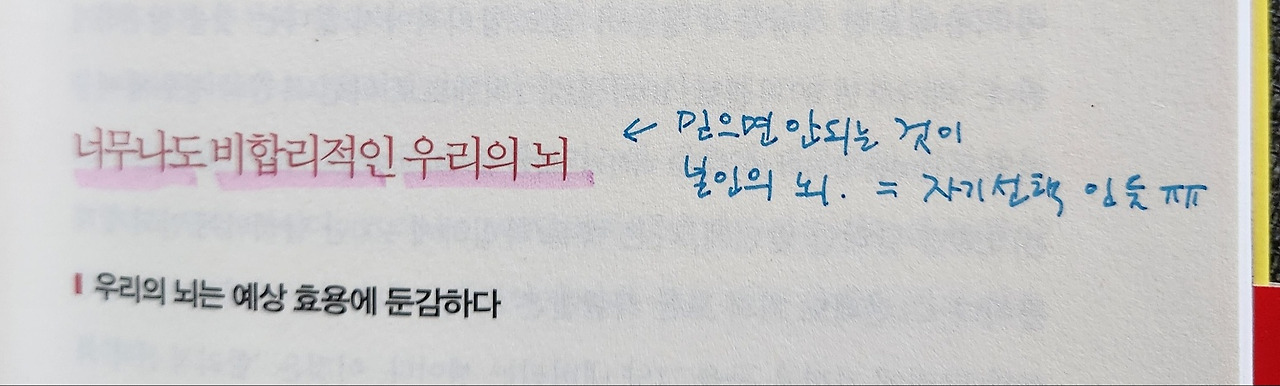 너무나도 비합리적인 우리의 뇌
← 믿으면 안되는 것이
본인의 뇌. = 자기선택 인듯 ㅠㅠ
우리의 뇌는 예상 효용에 둔감하다